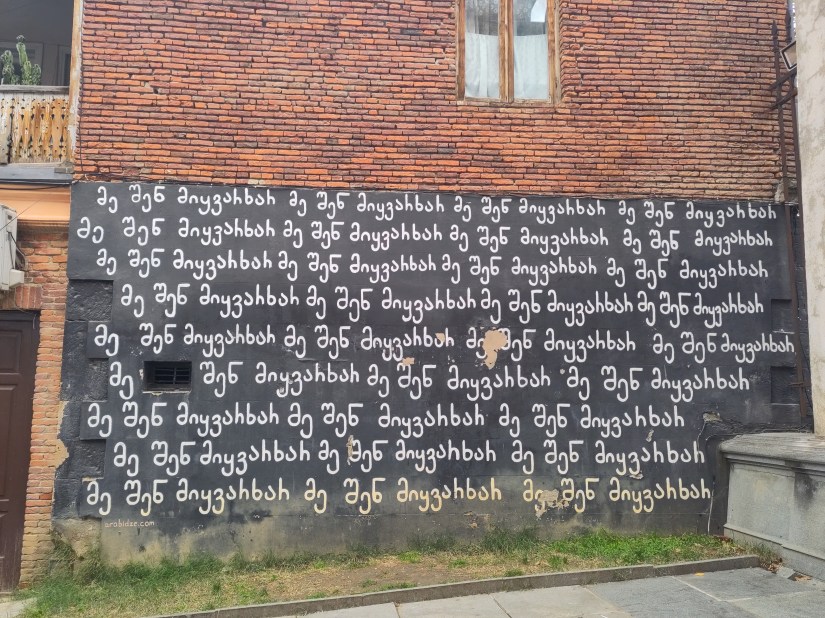 მე შენ მიყვარხარ მე შენ მიყვარხარ მე შენ მიყვარხარ მე შენ მიყვარხარ
მე შენ მიყვარხარ მე შენ მიყვარხარ მე შენ მიყვარხარ მე შენ მიყვარხარ
მე შენ მიყვარხარ მე შენ მიყვარხარ მე შენ მიყვარხარ მე შენ მიყვარხარ
მე შენ მიყვარხარ მე შენ მიყვარხარ მე შენ მიყვარხარ მე შენ მიყვარხარ
მე შენ მიყვარხარ მე შენ მიყვარხარ მე შენ მიყვარხარ მე შენ მიყვარხარ
მე შენ მიყვარხარ მე შენ მიყვარხარ მე შენ მიყვარხარ
მე შენ მიყვარხარ მე შენ მიყვარხარ მე შენ მიყვარხარ
მე შენ მიყვარხარ მე შენ მიყვარხარ მე შენ მიყვარხარ
მე შენ მიყვარხარ მე შენ მიყვარხარ მე შენ მიყვარხარ